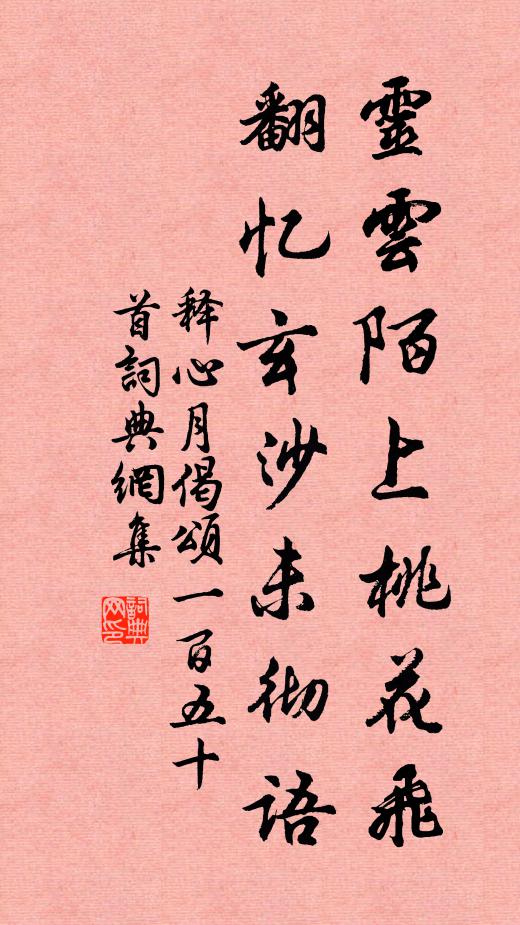 靈雲陌上桃花飛
翻忆玄沙未彻语
释心月偈頌一百五十
首詞典網集
詞典網印